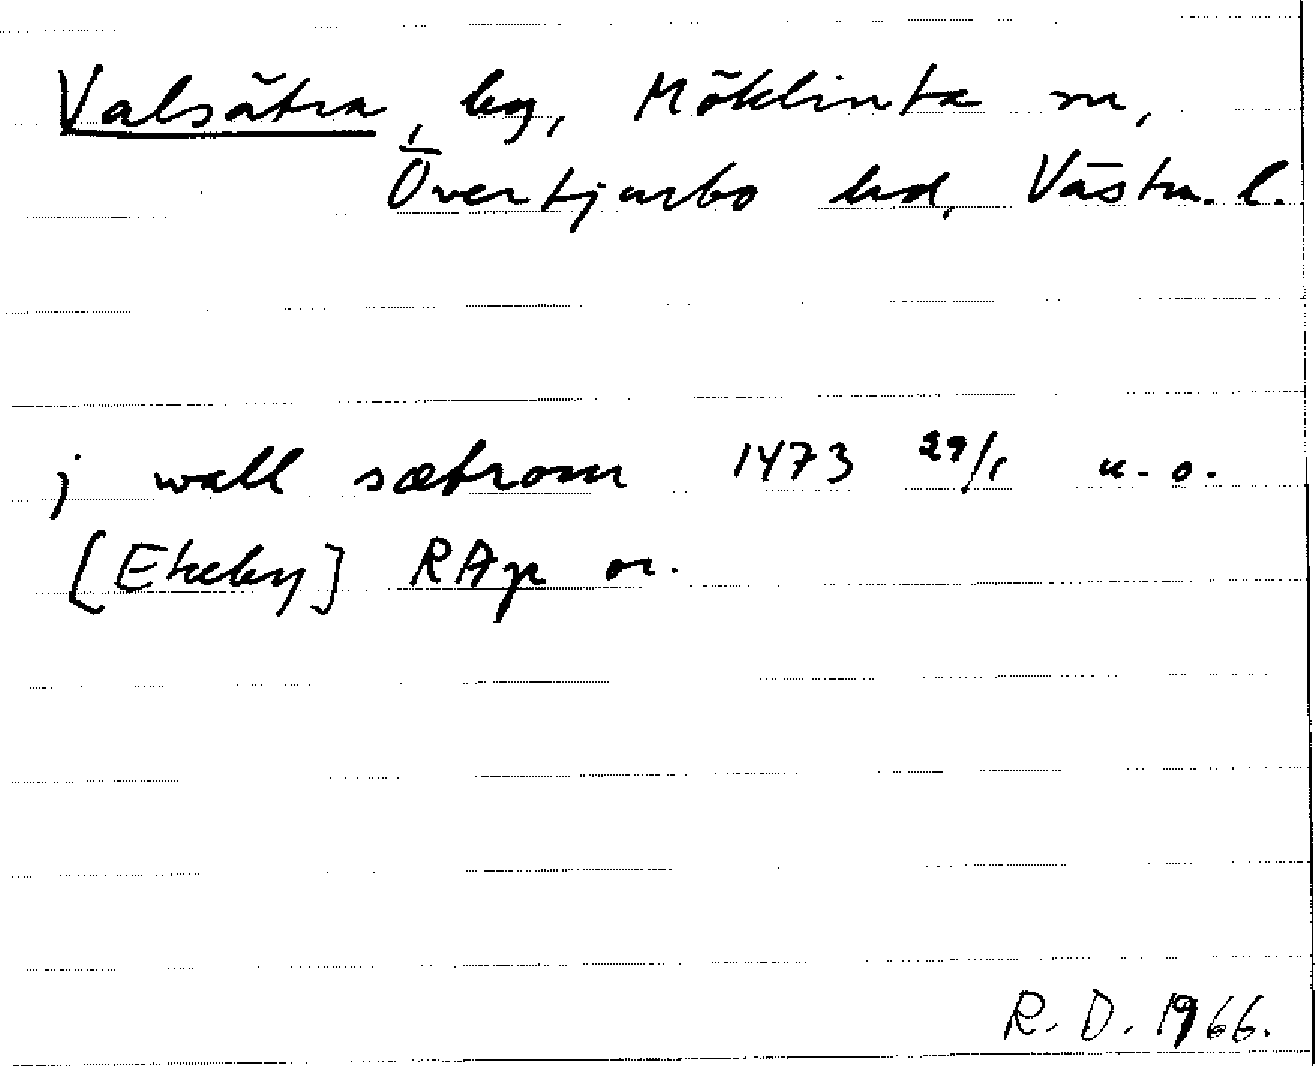 Valsätra, by, Möklinta sn,
Övertjurbo hd, Västm. l.
j wall sætrom 1473 29/1 u. o.
[Ekeby] RAp or.
R. D. 1966.